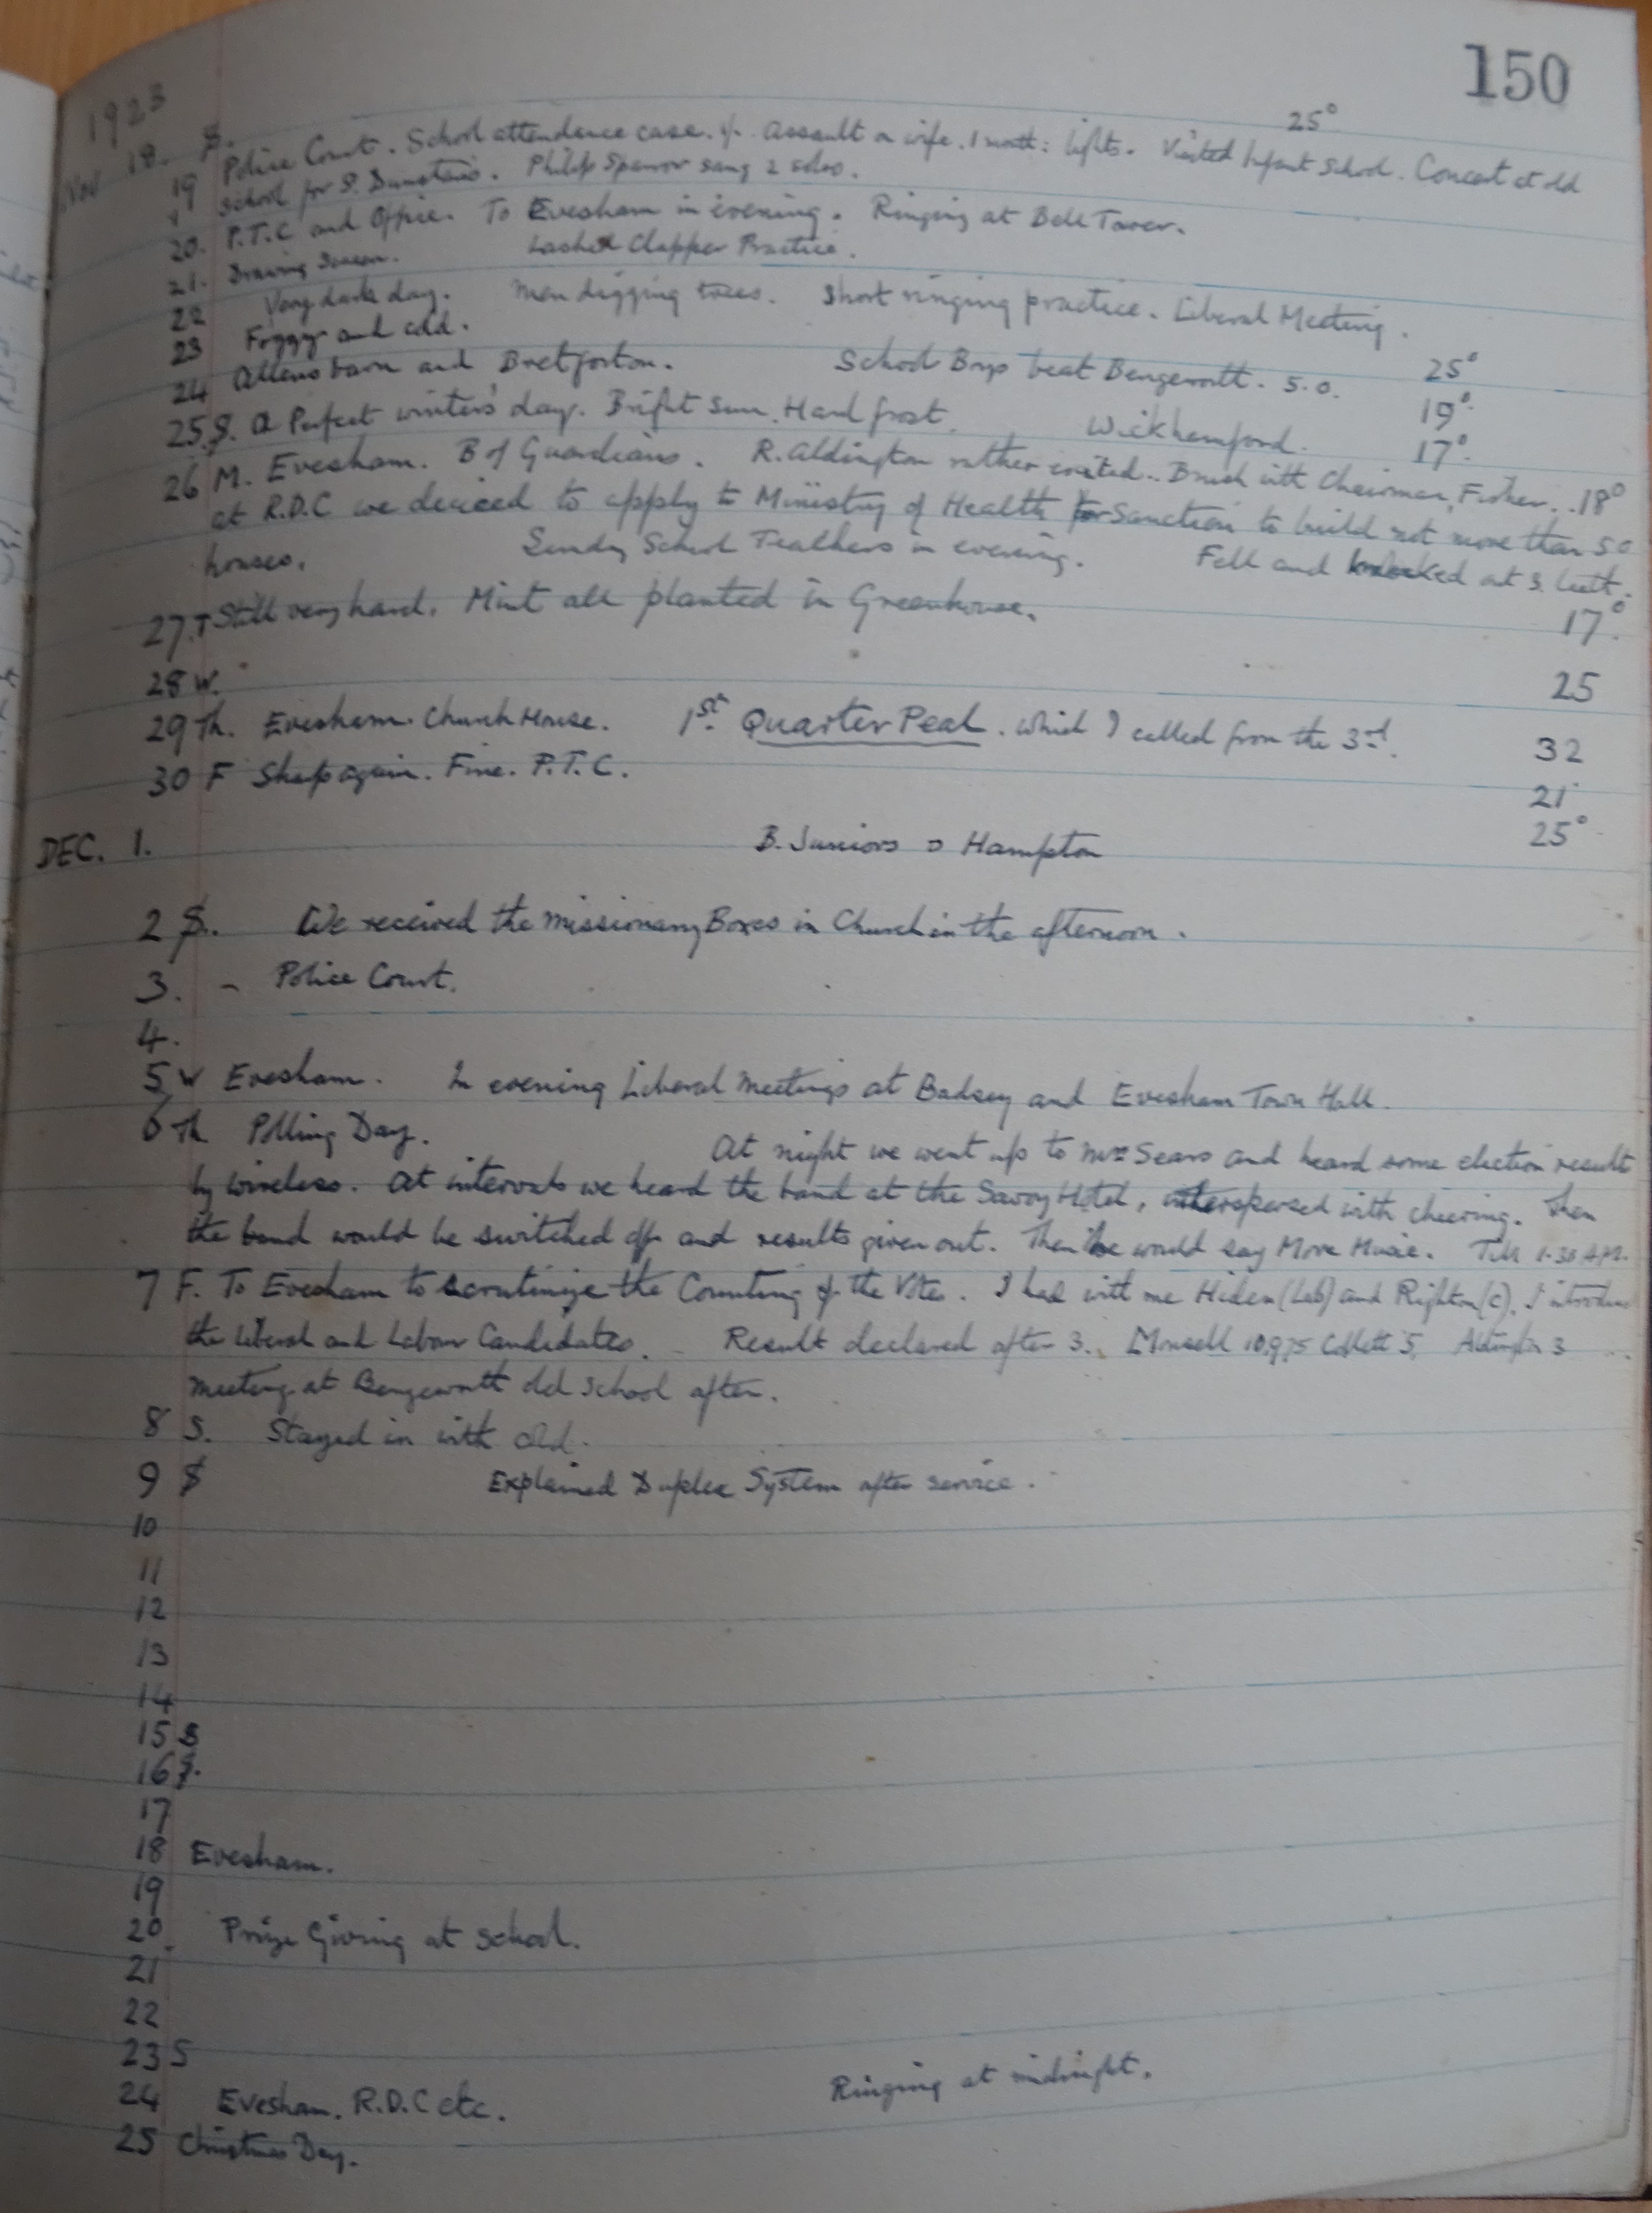 150
1923
Nov 18. S. 25°
19 Police Court. School attendance case. Assault on wife. 1 month: Visited Infant School. Concert at old
School for S. Dunstan's. Philip Sparrow sang 2 solos.
20. P.T.C and Office. To Evesham in evening. Ringing at Bell Tower.
21. Drawing Lashed Clapper Practice.
22 Very dark day. Men digging trees. Short ringing practice. Liberal Meeting.
23 Foggy and cold. 25°
24 Allens barn and Bretforton. School Boys beat Bengeworth. 5.0. 19°.
25 S. A Perfect winter's day. Bright Sun. Hard frost. Wickhamford. 17°.
26 M. Evesham. B of Guardians. R. Aldington rather excited.. Brush with Chairman, Fisher. 18°
at R.D.C we decided to apply to Ministry of Health for Sanction to build not more than 50
houses. Sunday School Teachers in evening. Fell and knocked out 3. teeth.
27. T Still very hard. Mint all planted in Greenhouse. 17°.
28 W. 25
29 Th. Evesham. Church House. 1st. Quarter Peal. which I called from the 3rd. 32
30 F Sharp again. Fine. P.T.C. 21
DEC. 1. B. Juniors v Hampton 25°
2 S. We received the Missionary Boxes in Church in the afternoon.
3. - Police Court.
4.
5 W Evesham. In evening Liberal Meetings at Badsey and Evesham Town Hall.
6 Th Polling Day. At night we went up to Mr Sears and heard some election results
by wireless. At intervals we heard the band at the Savoy Hotel, interspersed with cheering. Then
the band would be switched off and results given out. Then he would say More Music. Till 1.30 A.M.
7 F. To Evesham to scrutinize the Counting of the Votes. I had with me Hiden (Lab) and Righton (c). I introduc
the Liberal and Labour Candidates. Result declared after 3. Monsell 10,975 Collett 5, Aldington 3
Meeting at Bengeworth old School after.
8 S. Stayed in with cold.
9 S Explained Duplex System after service.
10
11
12
13
14
15 S
16 S.
17
18 Evesham.
19
20 Prize Giving at School.
21
22
23 S
24 Evesham. R.D.C etc. Ringing at midnight.
25 Christmas Day.